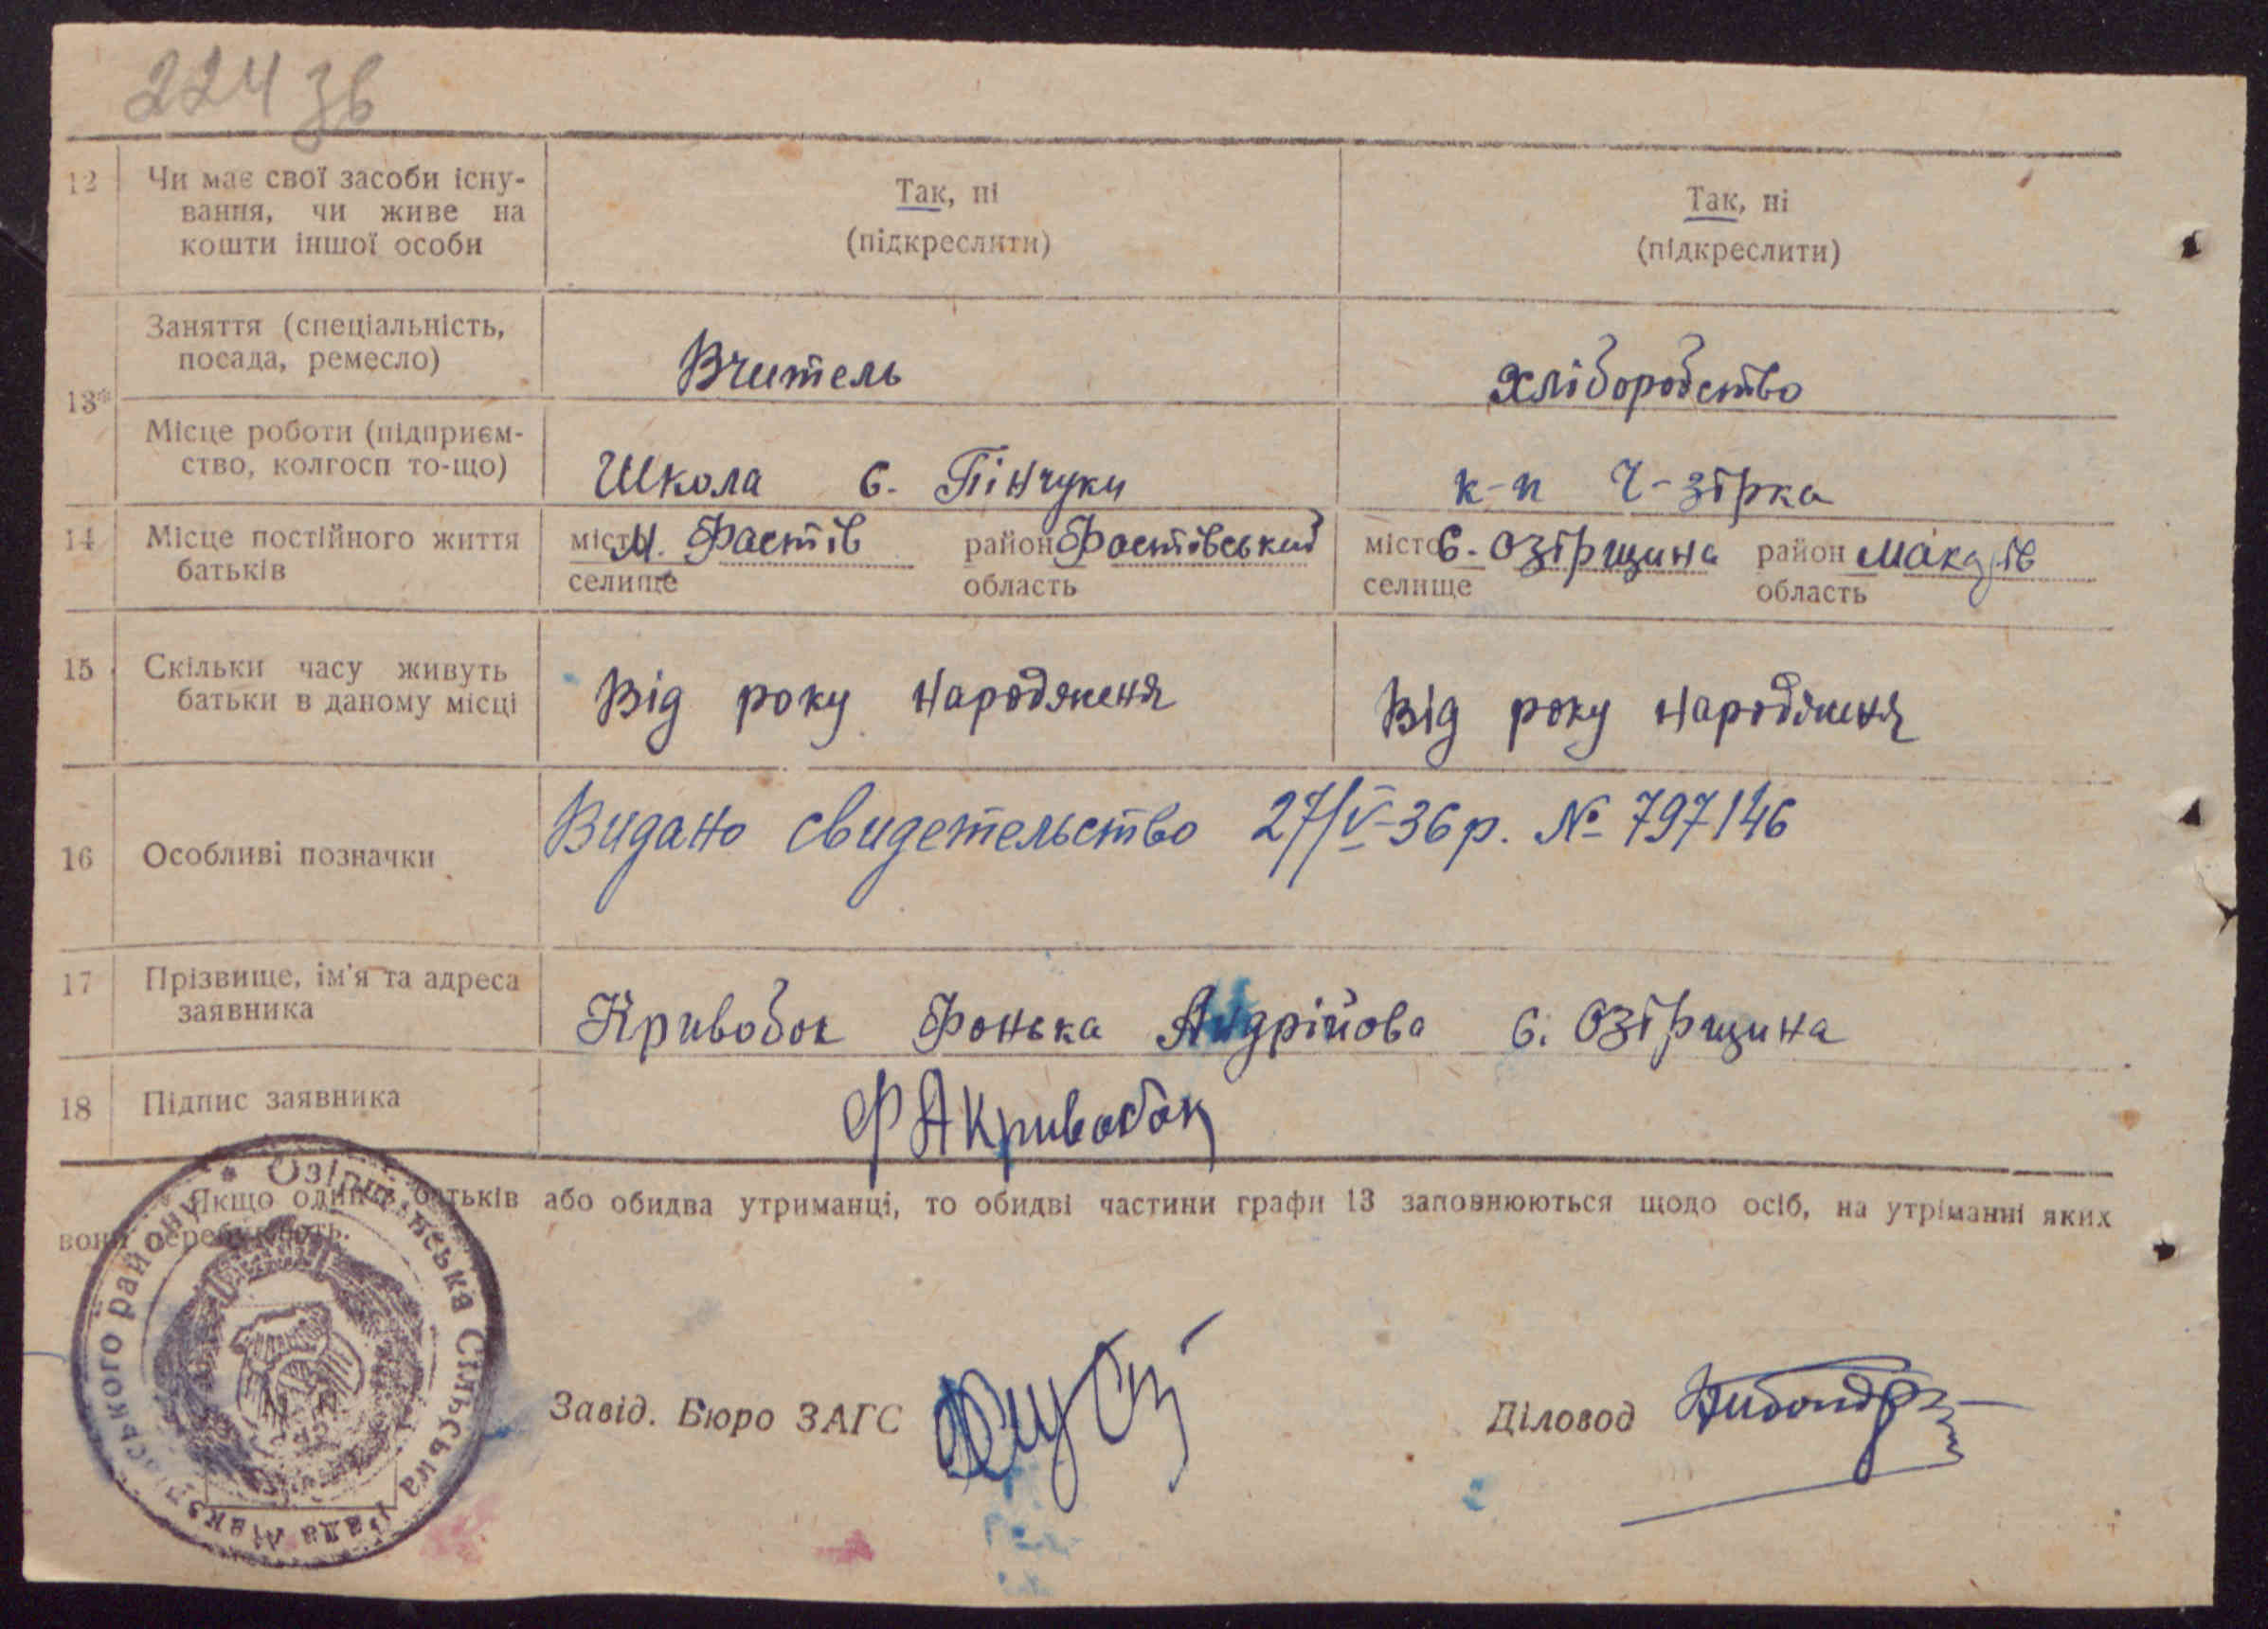 224 зв
12 Чи має свої засоби існу-
вання, чи живе на
кошти іншої особи
Так, ні
(підкреслити)
Так, ні
(підкреслити)
13*
Заняття (спеціальність,
посада, ремесло)
Вчитель
Хліборобство
Місце роботи (підприєм-
ство, колгосп то-що)
Школа с. Пінчуки
к-п Ч-зірка
14 Місце постійного життя
батьків
місто м. Фастів район Фастівський
селище область
місто с. Озірщина район Макарів
селище область
15 Скільки часу живуть
батьки в даному місці
Від року народженя
Від року народженя
16 Особливі позначки
Видано свидетельство 27/V-36 р. № 797146
17 Прізвище, ім'я та адреса
заявника
Кривобок Фонька Андрійова с. Озірщина
18 Підпис заявника
Ф А Кривобок
Якщо один з батьків або обидва утриманці, то обидві частини графи 13 заповнюються щодо осіб, на утриманні яких
вони перебувають.
Озірщанська Сільська Рада Макарівського району
Завід. Бюро ЗАГС
Діловод